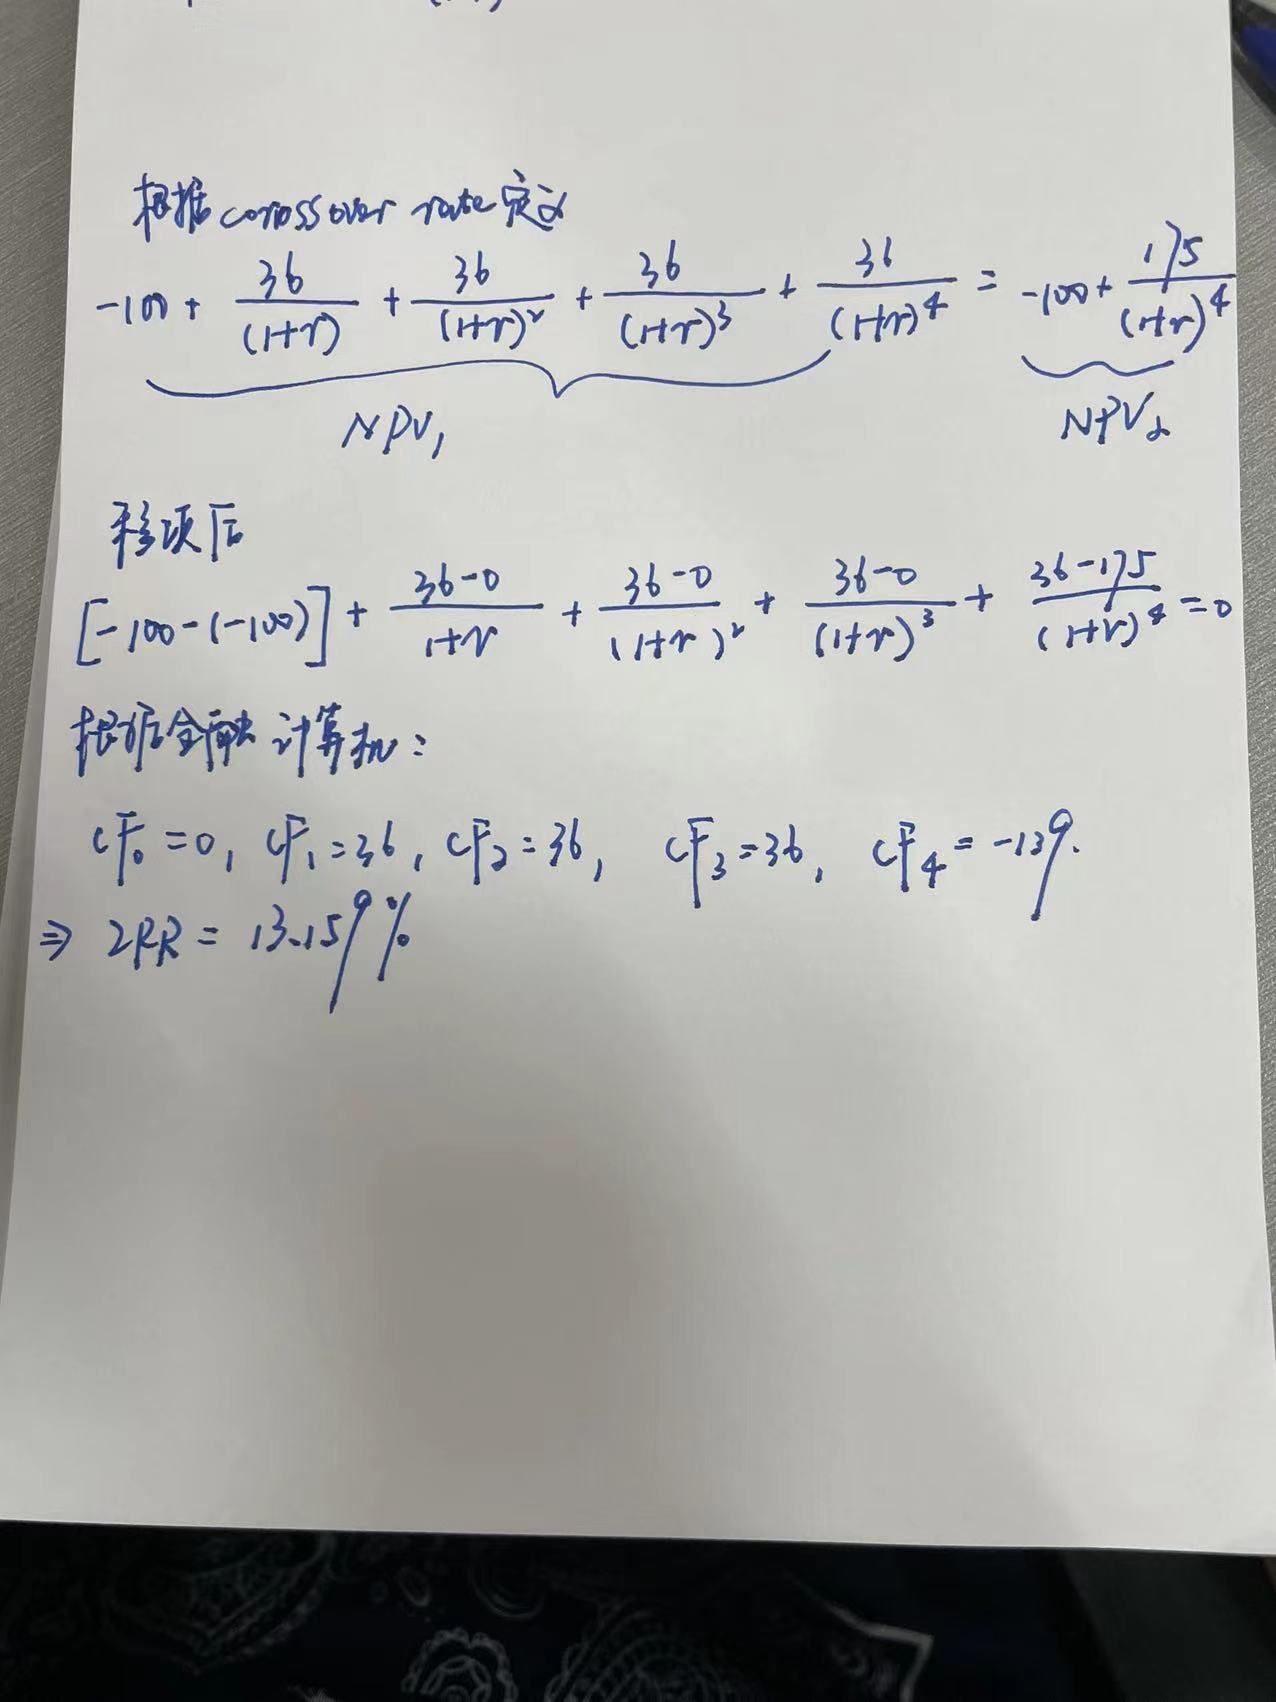 根据corossover rate定义
-100 + 36/(1+r) + 36/(1+r)² + 36/(1+r)³ + 36/(1+r)⁴ = -100 + 175/(1+r)⁴
NPV₁ NPV₂
移项后
[-100-(-100)] + 36-0/1+r + 36-0/(1+r)² + 36-0/(1+r)³ + 36-175/(1+r)⁴ = 0
根据金融计算机：
CF₀=0, CF₁=36, CF₂=36, CF₃=36, CF₄=-139.
⇒ IRR = 13.159%